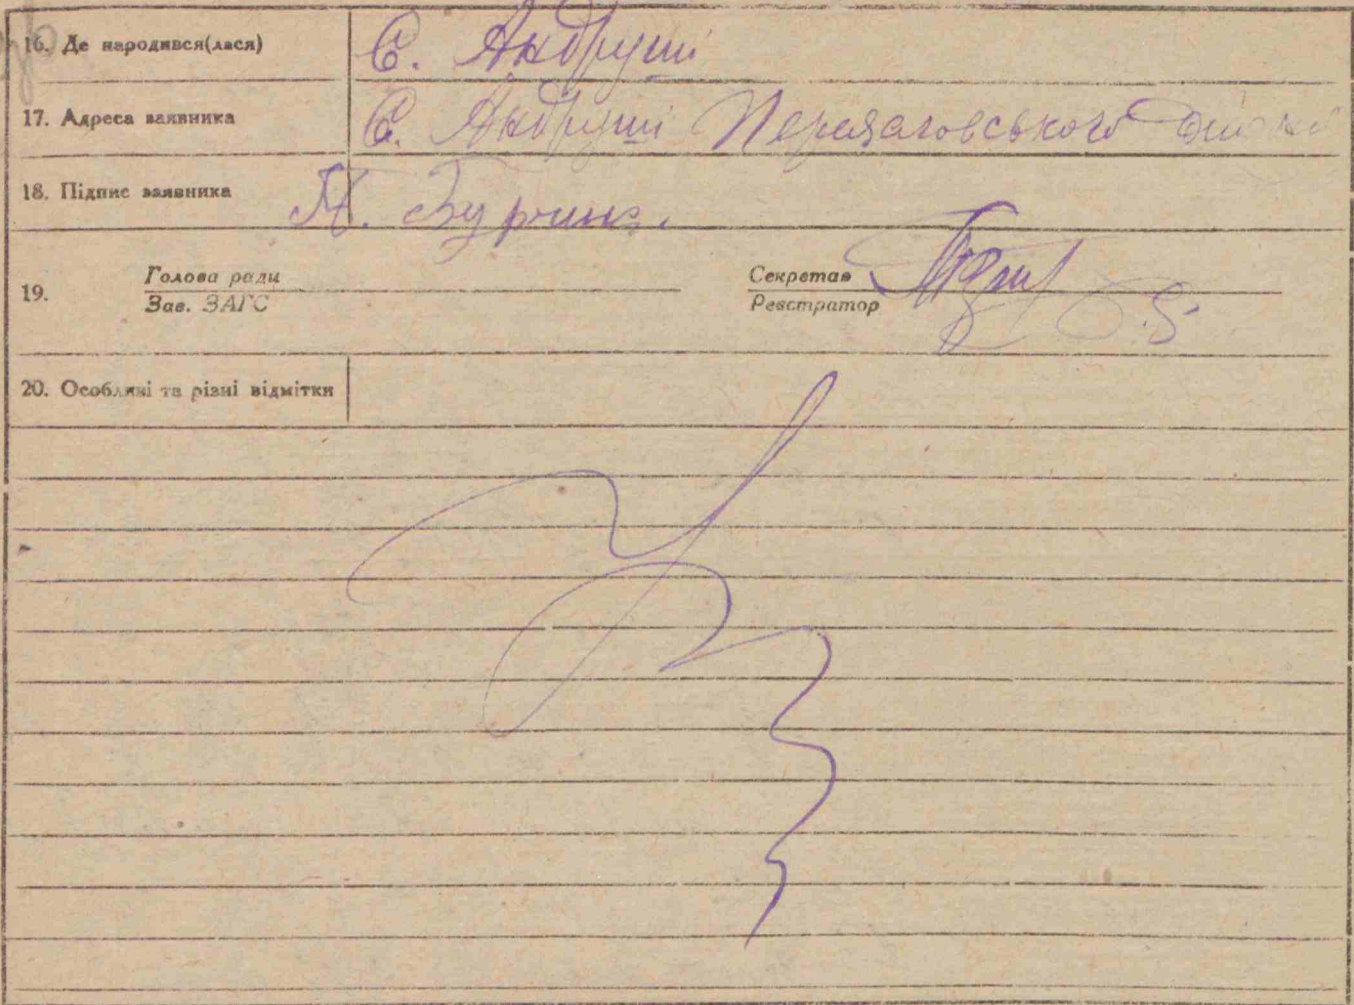 16. Де народився(лася) С. Андруші
17. Адреса заявника С. Андруші Переяславського
18. Підпис заявника
19. Голова ради Секретар
Зав. ЗАГС Реєстратор
20. Особливі та різні відмітки